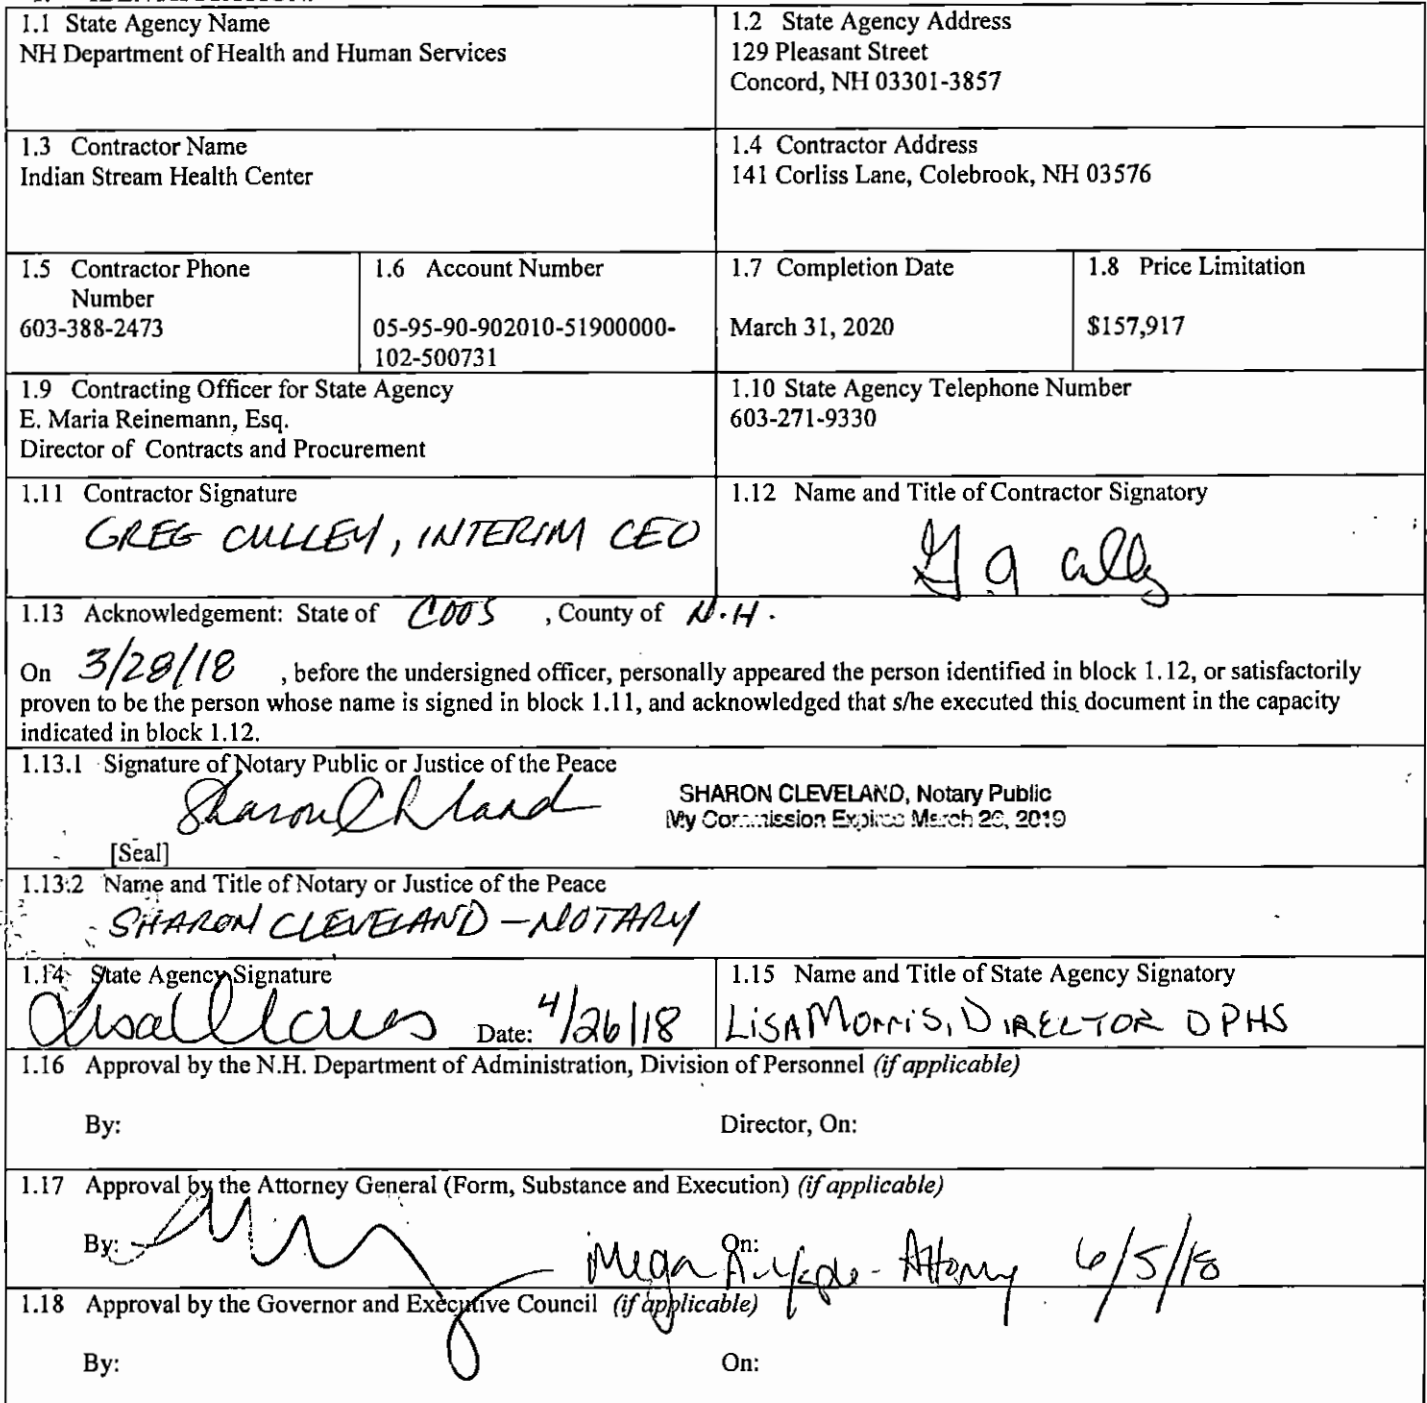 1.1 State Agency Name
NH Department of Health and Human Services
1.2 State Agency Address
129 Pleasant Street
Concord, NH 03301-3857
1.3 Contractor Name
Indian Stream Health Center
1.4 Contractor Address
141 Corliss Lane, Colebrook, NH 03576
1.5 Contractor Phone
Number
603-388-2473
1.6 Account Number
05-95-90-902010-51900000-
102-500731
1.7 Completion Date
March 31, 2020
1.8 Price Limitation
$157,917
1.9 Contracting Officer for State Agency
E. Maria Reinemann, Esq.
Director of Contracts and Procurement
1.10 State Agency Telephone Number
603-271-9330
1.11 Contractor Signature
GREG CULLEY, INTERIM CEO
1.12 Name and Title of Contractor Signatory
1.13 Acknowledgement: State of COOS , County of N.H.
On 3/28/18 , before the undersigned officer, personally appeared the person identified in block 1.12, or satisfactorily
proven to be the person whose name is signed in block 1.11, and acknowledged that s/he executed this document in the capacity
indicated in block 1.12.
1.13.1 Signature of Notary Public or Justice of the Peace
SHARON CLEVELAND, Notary Public
My Commission Expires March 26, 2019
[Seal]
1.13.2 Name and Title of Notary or Justice of the Peace
SHARON CLEVELAND - NOTARY
1.14 State Agency Signature
Date: 4/26/18
1.15 Name and Title of State Agency Signatory
LISA MORRIS, DIRECTOR DPHS
1.16 Approval by the N.H. Department of Administration, Division of Personnel (if applicable)
By:
Director, On:
1.17 Approval by the Attorney General (Form, Substance and Execution) (if applicable)
By:
On:
Attorney 6/5/18
1.18 Approval by the Governor and Executive Council (if applicable)
By:
On: